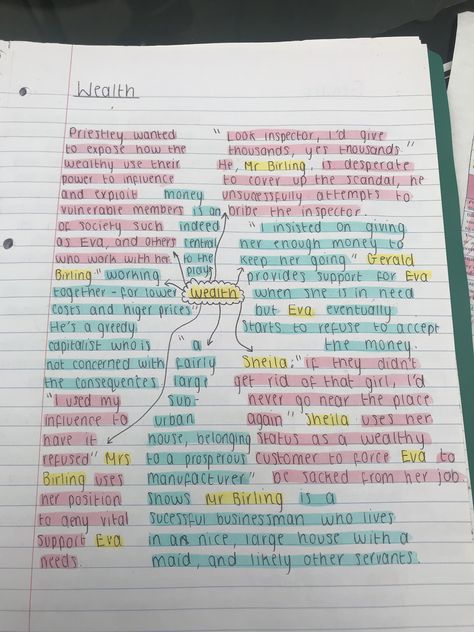 Wealth
Priestley wanted
to expose how the
wealthy use their
power to influence
and exploit
vulnerable members
of society such
as Eva, and others
who work with her
money
is an
indeed
central
to the
play
"Look inspector, I'd give
thousands, yes thousands"
He, Mr Birling, is desperate
to cover up the scandal, he
unsuccessfully attempts to
bribe the inspector.
"I insisted on giving
her enough money to
keep her going" Gerald
provides support for Eva
when she is in need
but Eva eventually
starts to refuse to accept
the money.
wealth
Birling "working
together - for lower
costs and higer prices"
He's a greedy
capitalist who is
not concerned with
the consequentes
Sheila: "if they didn't
get rid of that girl, I'd
never go near the place
again" Sheila uses her
status as a wealthy
customer to force Eva to
be sacked from her job
"I used my
influence to
have it
refused" Mrs
Birling uses
her position
to deny vital
support Eva
needs.
"a
fairly
large
sub-
urban
house, belonging
to a prosperous
manufacturer"
shows Mr Birling is a
sucessful businessman who lives
in a nice, large house with a
maid, and likely other servants.